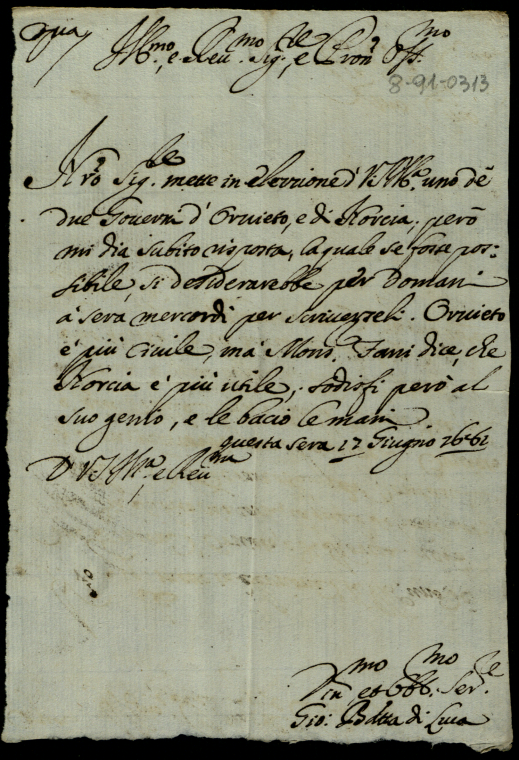 Ill.mo, e Reu.mo Sig.re, e Pron. Oss.mo
8-91-0313
N'ro Sig.re mette in elezzione d' VS Ill.ma uno de
due Gouerni d' Oruieto, e di Norcia, però
mi dia subito risposta, la quale se fosse pos:
sibile, si desiderarebbe per Domani
à sera mercordi per scriuerseli. Oruieto
è più Ciuile, mà Mons. Fani dice, che
Norcia è più utile, sodisfi però al
suo genio, e le bacio le mani
questa sera 17 Giugno 1661
D' VS Ill.ma, e Reu.ma
mo mo re
et Obb. Ser.
Gio: Batta di Luca